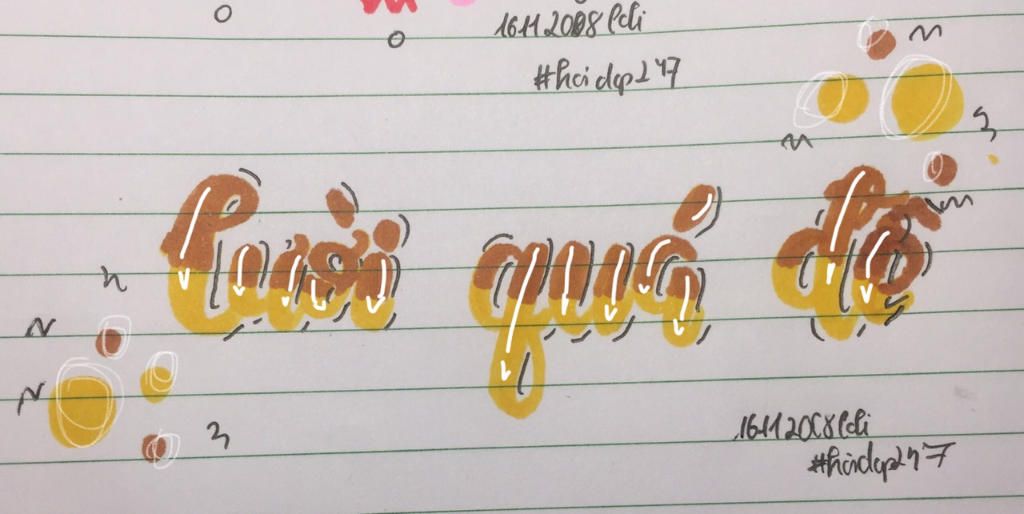 16112008 lcli
#hoidap247
Lười quá độ
16112008 lcli
#hoidap247